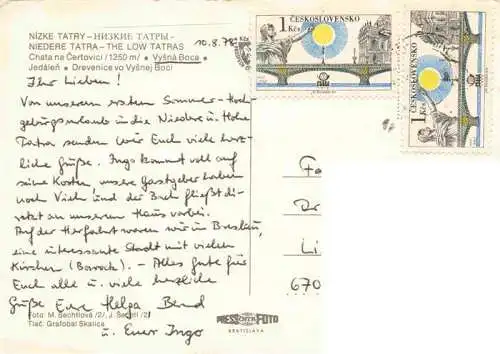 NÍZKE TATRY – НИЗКИЕ ТАТРЫ –
NIEDERE TATRA – THE LOW TATRAS
Chata na Čertovici /1250 m/ • Vyšná Boca •
Jedáleň • Drevenice vo Vyšnej Boci
10.8.78
1 Kčs ČESKOSLOVENSKO
1 Kčs ČESKOSLOVENSKO
Ihr Lieben!
Von unserem ersten Sommer-Hoch-
gebirgsurlaub in die Niedere u. Hohe
Tatra senden wir Euch viele herz-
liche Grüße. Ingo kommt voll auf
seine Kosten, unsere Gastgeber haben
noch Vieh und der Bach fließt di-
rekt an unserem Haus vorbei.
Auf der Herfahrt waren wir in Breslau,
eine interessante Stadt mit vielen
Kirchen (Barock). – Alles gute für
Euch alle u. viele herzliche
Grüße Eure Helga Bernd
u. Euer Ingo
Fa
Dr
Li
670
Foto: M. Šechtlová /2/, J. Šechtl /2/
Tlač: Grafobal Skalica
PRESSFOTO
BRATISLAVA